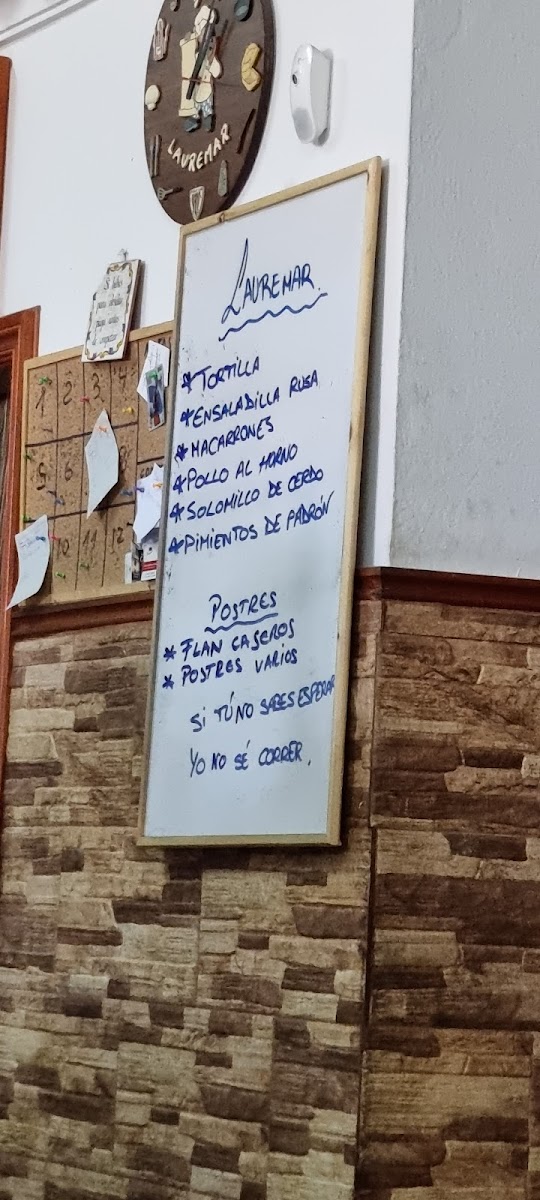 LAUREMAR
LAUREMAR.
*TORTILLA
*ENSALADILLA RUSA
*MACARRONES
*POLLO AL HORNO
*SOLOMILLO DE CERDO
*PIMIENTOS DE PADRÓN
POSTRES
* FLAN CASEROS
* POSTRES VARIOS
SI TÚ NO SABES ESPERAR
YO NO SÉ CORRER.
1 2 3 4
5 6
10 11 12